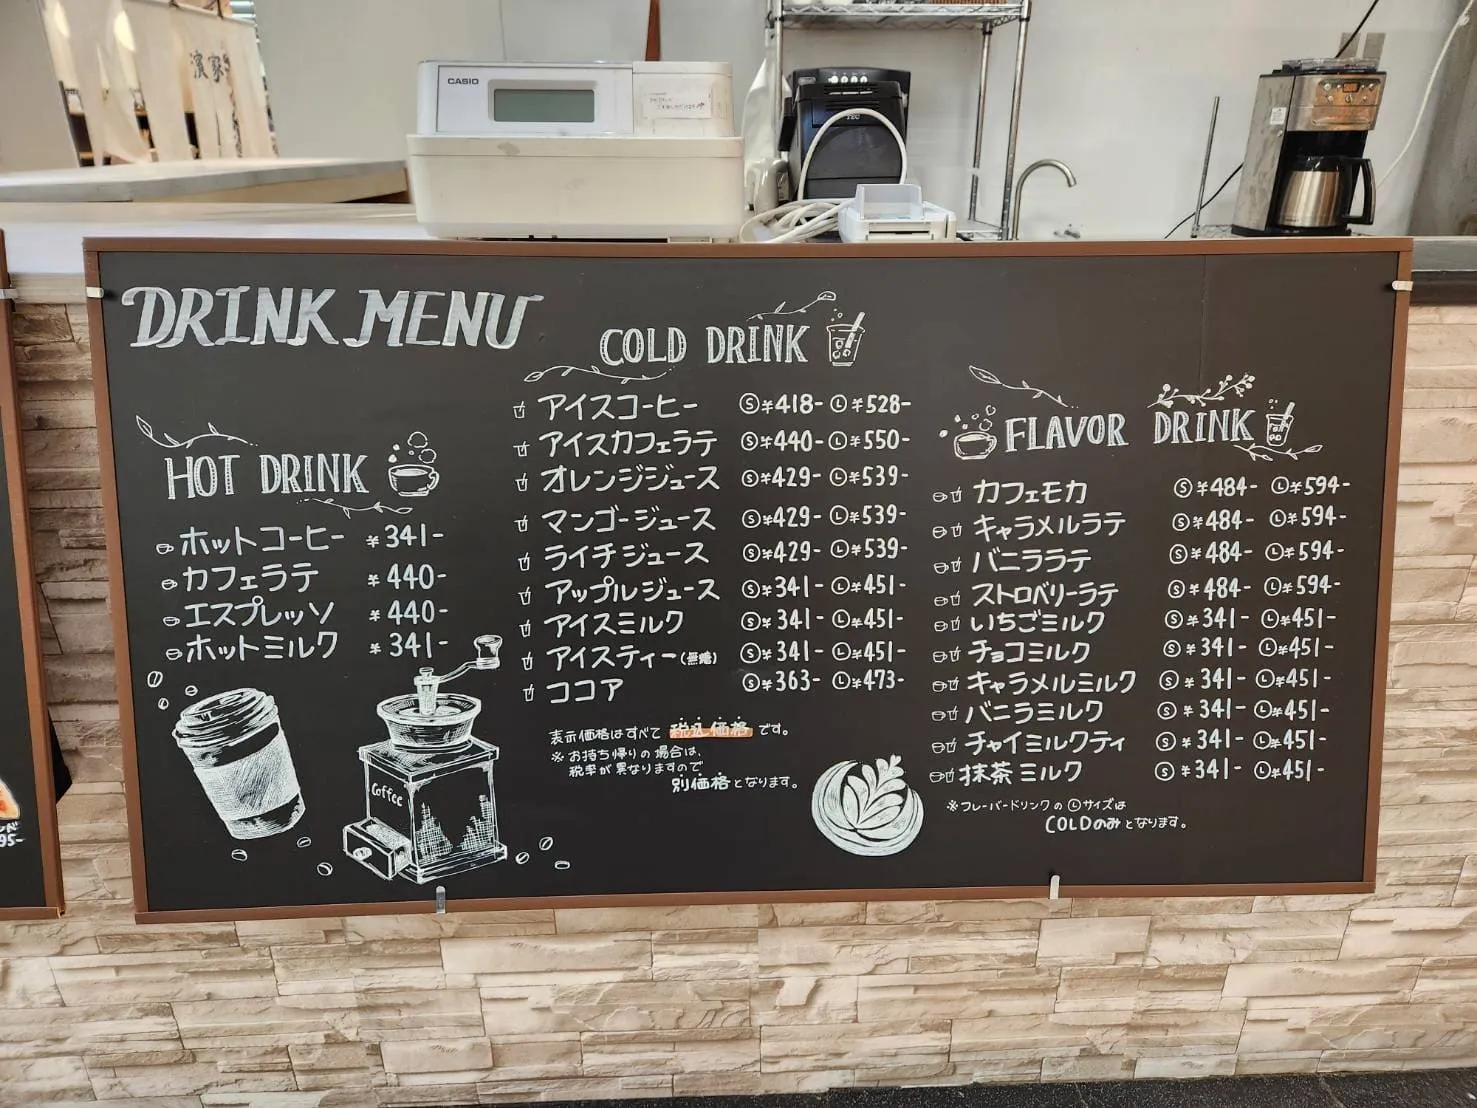 濱家
CASIO
TEC
DRINK MENU
HOT DRINK
ホットコーヒー ¥341-
カフェラテ ¥440-
エスプレッソ ¥440-
ホットミルク ¥341-
Coffee
COLD DRINK
アイスコーヒー Ⓢ¥418- Ⓛ¥528-
アイスカフェラテ Ⓢ¥440- Ⓛ¥550-
オレンジジュース Ⓢ¥429- Ⓛ¥539-
マンゴージュース Ⓢ¥429- Ⓛ¥539-
ライチジュース Ⓢ¥429- Ⓛ¥539-
アップルジュース Ⓢ¥341- Ⓛ¥451-
アイスミルク Ⓢ¥341- Ⓛ¥451-
アイスティー(無糖) Ⓢ¥341- Ⓛ¥451-
ココア Ⓢ¥363- Ⓛ¥473-
表示価格はすべて 税込価格 です。
※お持ち帰りの場合は、
税率が異なりますので
別価格となります。
FLAVOR DRINK
カフェモカ Ⓢ¥484- Ⓛ¥594-
キャラメルラテ Ⓢ¥484- Ⓛ¥594-
バニララテ Ⓢ¥484- Ⓛ¥594-
ストロベリーラテ Ⓢ¥484- Ⓛ¥594-
いちごミルク Ⓢ¥341- Ⓛ¥451-
チョコミルク Ⓢ¥341- Ⓛ¥451-
キャラメルミルク Ⓢ¥341- Ⓛ¥451-
バニラミルク Ⓢ¥341- Ⓛ¥451-
チャイミルクティ Ⓢ¥341- Ⓛ¥451-
抹茶ミルク Ⓢ¥341- Ⓛ¥451-
※フレーバードリンクのⓁサイズは
COLDのみとなります。
95-